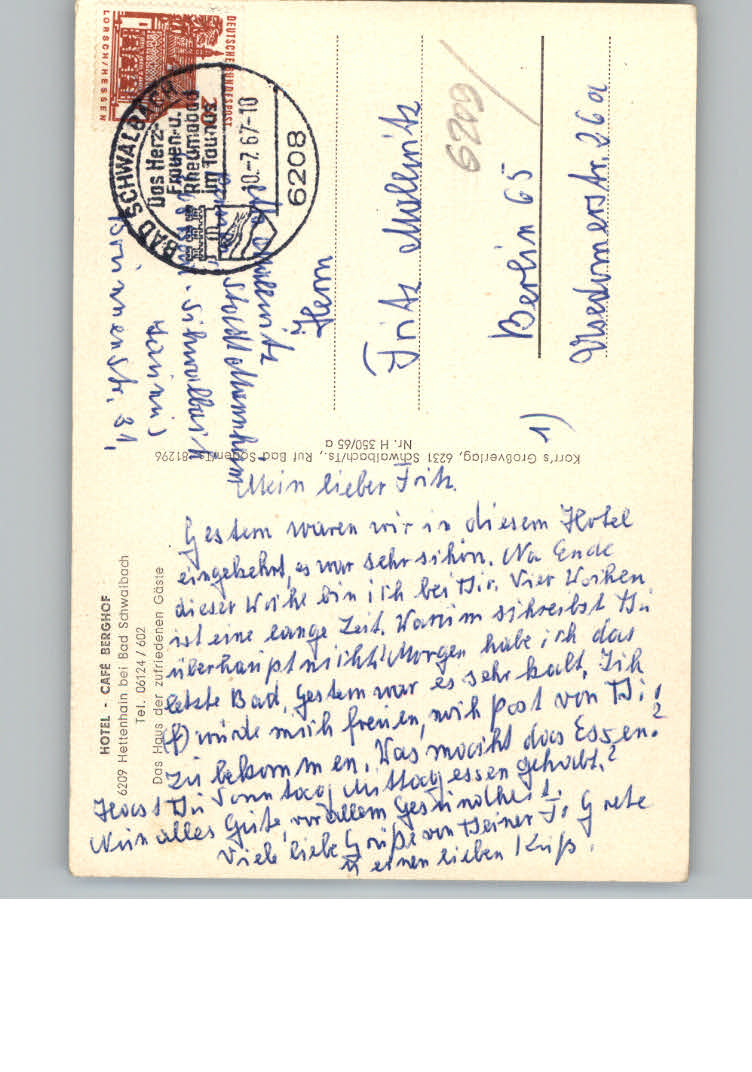 HOTEL - CAFÉ BERGHOF
6209 Hettenhain bei Bad Schwalbach
Tel. 06124 / 602
Das Haus der zufriedenen Gäste
Mein lieber Fritz.
Gestern waren wir in diesem Hotel
eingekehrt, es war sehr schön. Na Ende
dieser Woche bin ich bei Dir. Vier Wochen
ist eine lange Zeit. Warum schreibst Du
überhaupt nicht? Morgen habe ich das
letzte Bad, gestern war es sehr kalt, Ich
würde mich freuen, noch post von Dir
zu bekommen. Was macht das Essen?
Hast Du Sonntag Mittagessen gehabt?
Nun alles Gute, vor allem Gesundheit.
Viele liebe Grüße von Deiner Grete
u einen lieben Kuß.
Korr's Großverlag, 6231 Schwalbach/Ts., Ruf Bad Soden/Ts. 81296
Nr. H 350/65 a
DEUTSCHE BUNDESPOST
20
LORSCH/HESSEN
BAD SCHWALBACH
Das Herz-
Frauen- u.
Rheumabad
im Taunus
10.-7.67-10
6208
Mollwitz
Stadt Mannheim
Schwalbach
Taunus
Brunnenstr. 31,
Herrn
Fritz Mollwitz
6209
Berlin 65
Usedomerstr. 26a
1)